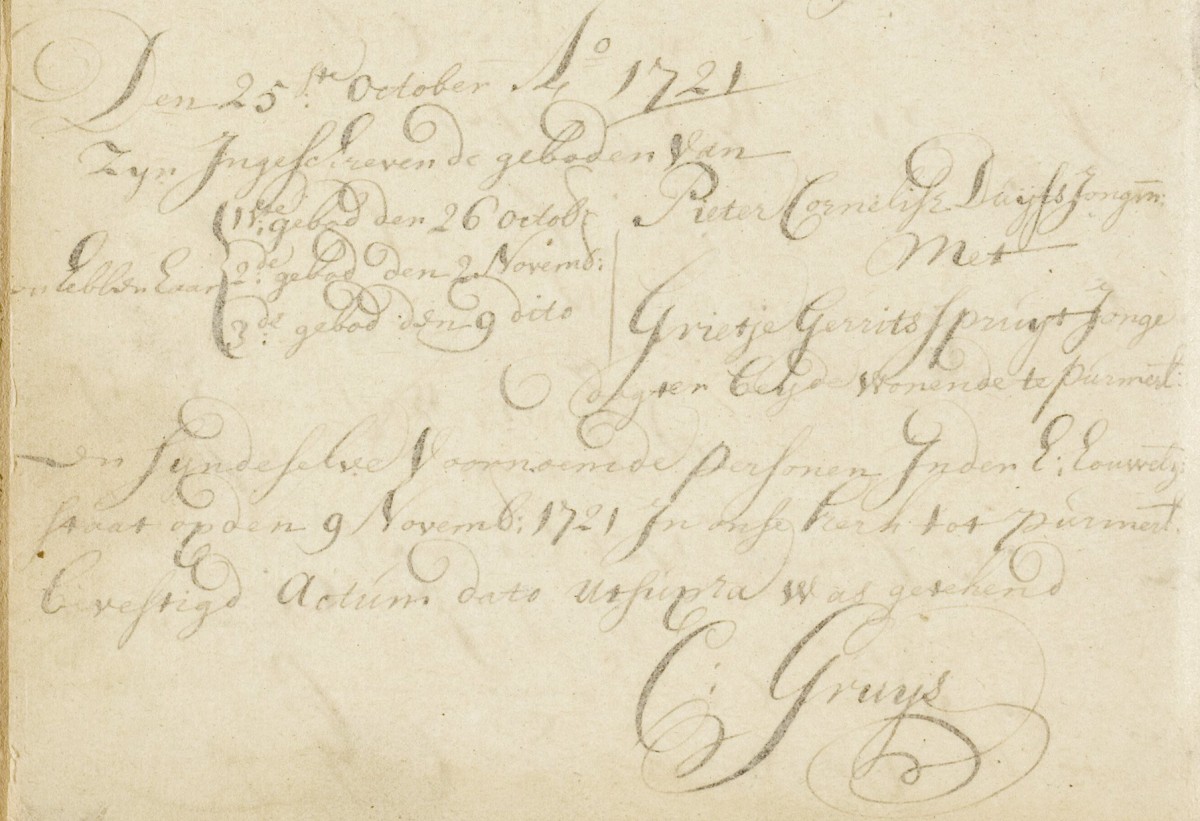 Den 25.ste October A.o 1721
Zyn Ingeschreven de geboden Van
en hebben haar
1ste gebod den 26 octob:
2de gebod den 2 Novemb:
3de gebod den 9 dito
Pieter Cornelisz Duyfs Jongm:
Met
Grietje Gerrits Spruyt Jonge
dogter beyde wonende te purmerl:
en syn deselve Voornoemde personen Inder h: houwelyx
staat op den 9 Novemb: 1721 In onse kerk tot purmerl:
bevestigd Actum dato utsupra was getekend
C: Gruys